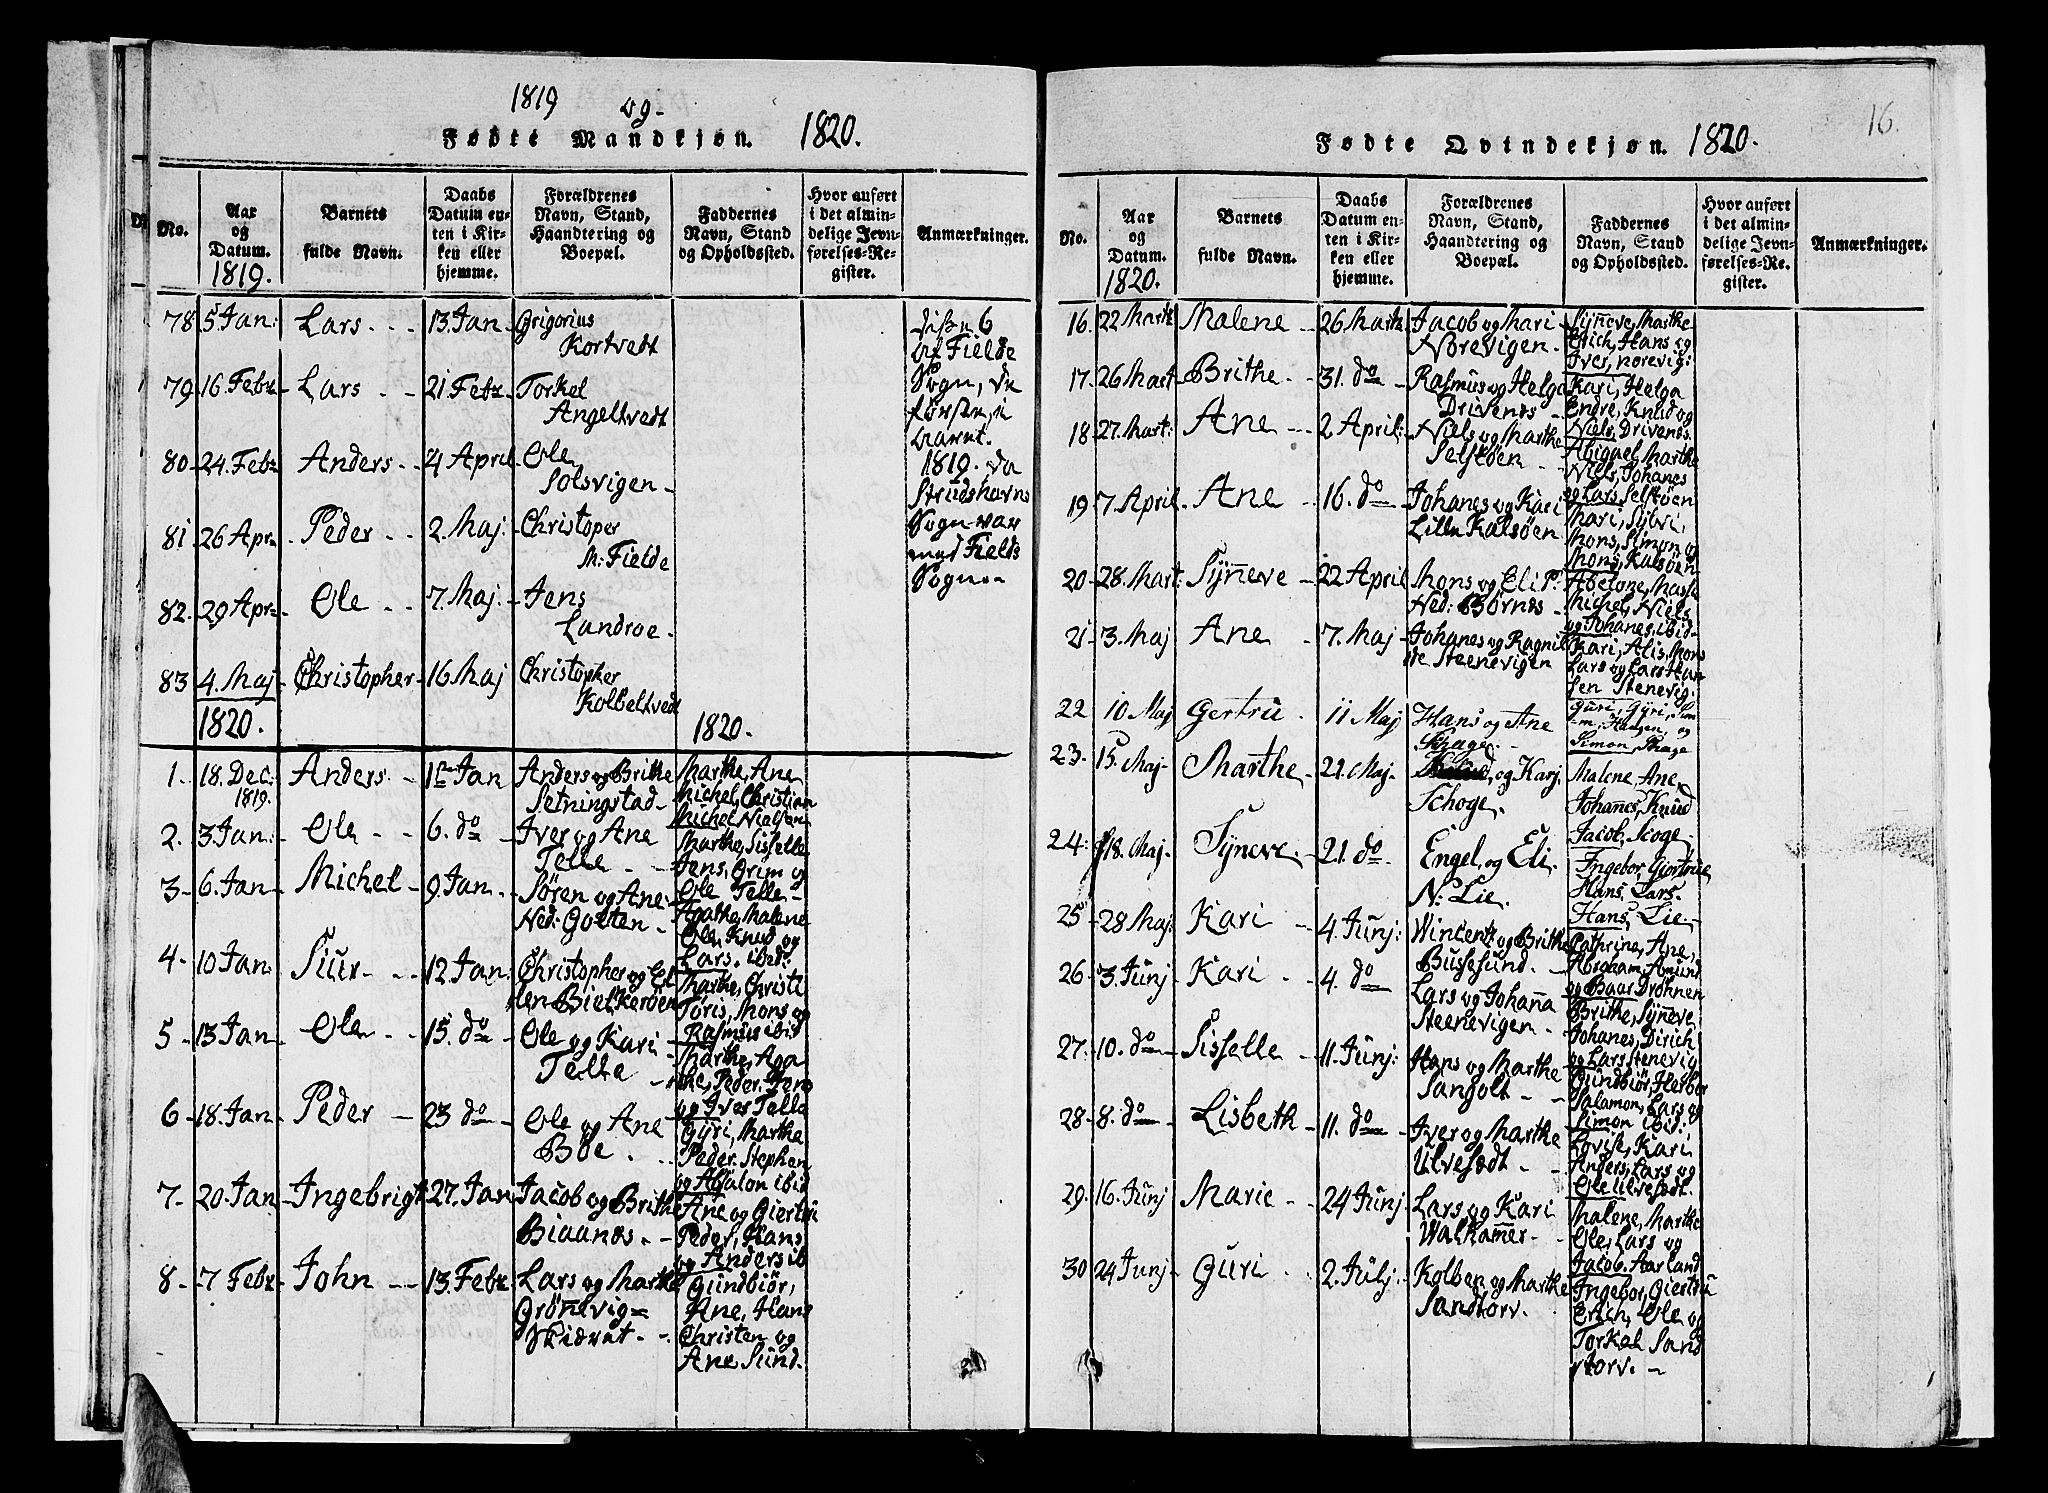 1819 og
Fødte Mandkjøn. 1820.
No.
Aar
og
Datum.
1819.
Barnets
fulde Navn.
Daabs
Datum en-
ten i Kir-
ken eller
hjemme.
Forældrenes
Navn, Stand,
Haandtering og
Boepæl.
Faddernes
Navn, Stand
og Opholdssted.
Hvor anført
i det almin-
delige Jevn-
førelses-Re-
gister.
Anmærkninger.
78 5 Jan: Lars 13 Jan Grigorius
Kortvedt
79 16 Febr Lars 21 Febr Torkel
Angeltvedt
80 24. Febr Anders 4 April Ole
Solsvigen
81 26 Apr Peder 2. Maj: Christoper
M: Fielde
82. 29 Apr Ole 7. Maj: Jens
Landroe
83 4. Maj Christopher 16 Maj Christopher
Kolbeltvedt
disse 6
af Fielde
Sogn, de
første i
Aaret
1819. da
Strudshavns
Sogn var
med Fields
Sogn
1820. 1820.
1. 18. Dec: 1819. Anders 1ste Jan Anders og Brithe
Setningstad
Marthe, Ane
Michel, Christian
Michel Nielsen
2. 3 Jan: Ole 6. do Iver og Ane
Telle
Marthe, Sisselle
Jens, Grim og
Ole Telle
3 6 Jan Michel 9. Jan Søren og Ane
Ned: Golten
Agathe, Malene
Ole, Knud og
Lars. ibid:
4 10 Jan: Siur 12 Jan: Christopher og El
len Bielkerøen
Marthe, Christi
Toris, Mons og
Rasmus ibid
5 13 Jan Ole 15. do Ole og Kari
Telle
Marthe, Aga
the, Peder, Jens
og Iver Telle
6 18. Jan Peder 23 do Ole og Ane
Bøe
Gyri, Marthe
Peder. Stephen
og Absalon ibid
7. 20. Jan Ingebrigt 27. Jan Jacob og Brithe
Biaanes
Ane og Giertru
Peder, Hans
og Anders ib
8 7 Febr John 13. Febr Lars og Marthe
Grønevig
Skiæret
Gundbiør,
Ane, Hans
Christen og
Ane Sund.
16.
Fødte Qvindekjøn. 1820.
No.
Aar
og
Datum.
1820.
Barnets
fulde Navn.
Daabs
Datum en-
ten i Kir-
ken eller
hjemme.
Forældrenes
Navn, Stand,
Haandtering og
Boepæl.
Faddernes
Navn, Stand
og Opholdssted.
Hvor anført
i det almin-
delige Jevn-
førelses-Re-
gister.
Anmærkninger.
16. 22 Martz Malene 26 Martz Jacob og Mari
Norevigen
Synneve, Marthe
Erich, Hans og
Iver, norevig:
17. 26 Mart Brithe 31. do Rasmus og Helga
Drivenes
Kari, Helga
Endre, Knud og
Niels, Drivenes
18 27. Mart: Ane 2 April: Niels og Marthe
Selstøen
Abigael, Marthe
Niels, Johanes
og Lars, Selstøen
19 7. April Ane 16. do Johanes og Kari
Lille Kalsøen
Mari, Sylvi,
Mons, Simon og
Mons Kalsøen
20 28. Mart: Synneve 22 April Mons og Eli P:
Ned: Børnes
Abelone, Masse
Michel, Niels
og Johanes, ibid
21 3. Maj Ane 7. Maj Johanes og Ragnil
de Steenevigen
Kari, Alis, Mons
Lars og Lars Han
sen Stenevig:
22 10 Maj Gertru 11 Maj Hans og Ane
Skage
Guri, Gyri, Sim
Hansen, og
Simon, Skage
23. 15. Maj Marthe 21. Maj Knud, og Karj
Schoge.
Malene, Ane,
Johanes, Knud
Jacob, Skoge
24: 18. Maj Syneve 21. do Engel, og Eli
N: Lie.
Ingebor, Giertrue
Hans, Lars
Hans, Lie.
25 28 Maj: Kari 4. Junj: Wincentz og Brithe
Bussesund
Cathrine, Ane,
Abraham, Amund
og Baar Drohnen
26 3. Junj Kari 4. do Lars og Johanna
Steenevigen
Brithe, Syneve
Johanes, Dirich
og Lars Stenevig
27. 10. do Sisselle 11. Junj: Hans og Marthe
Sangolt
Gundbiør, Herbor
Salamon, Lars og
Simon ibid:
28 8. do Lisbeth 11. do Iver og Marthe
Ulvesædt
Lovise, Kari
Anders, Lars og
Ole Ulvesædt.
29. 16. Junj Marie 24 Junj: Lars og Kari
Walkamer
Malene, Marthe
Ole, Lars og
Jacob. Aarland
30 24 Junj Guri 2. Julj: Kolben og Marthe
Sandtorv.
Ingebor, Giertru
Erich, Ole og
Torkel Sand
torv.